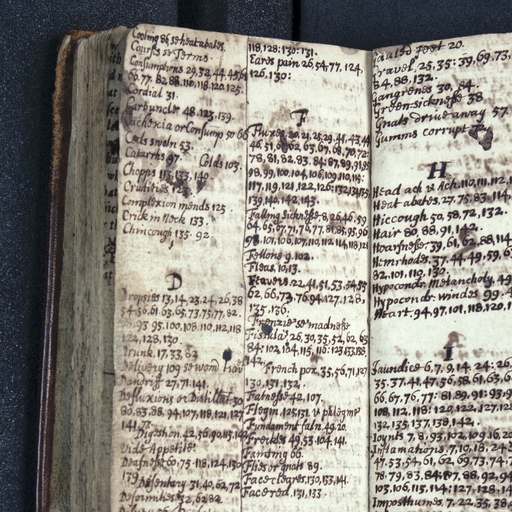 Cooling &
Courss or Terms.
Consumptions 29,32,44,45,6
66,77,82,88,110,118,120,125.
Cordial 31.
Carbuncler 48,123,139.
Cachexia or Consump 50 66
Cods swoln 53.
Catarrhs 97. Colds 103.
Chopps 113,133,140
Crudities 123
Complexion mends 125
Crick in Neck 133.
Chincough 135. 92
D
Dropsies 13,14,23,24,26,38
54,56,61,63,65,73,75,77,82.
93 95.100,108,110,112,118
122,128,130.
Drunk,17,33,62
Delivery 109
Dandriff 27,71,141.
Defluxions or Distillat 30
80,83,88,94,107,118,121,127
141,
Digestion,42,56,90,115,142
Deafnesse 60,75,118,124,130
139
Disentary 31,40,62,72
Deformities 32,62 82
118,128:130:131.
Ears pain 26,54,77,124,
126,130:
F
Fluxes 20,21,25,29,41,43,44
46,51,61,62,63,67,68,70,72
78,81,82,93,84,87,89,91,95
98,99,100,104,106,109,110,114
117,119,121,122,126:132,134,135
139,140,142,143.
Falling sicknesse 8,26,46,59
64,65,67,71,76,77,81,85,95,96
98,101,106,107,110,112,114,118,121
Fellons 9,102.
Fleas,10,13.
Feavers,22,41,51,53,54,55
62,66,73,76,94,127,128,
135,136.
Frenzie se madnesse
Fistula 26,30,35,52,62,63
84:102,104,115,116:123,133,138
142.
French pox,35,56,71,127
130,131,132.
Fatnesse 42,107.
Flegm 125,131 v phlegme
Fundament faln 49,20.
Freckles 49,53,104,141.
Fainting 66.
Flies or gnats 89.
Face cleares,130,133,141.
Face red,131,133.
Galled Feet 20.
Gravel,25,35:39,69,73,
84,88,132.
Gangrenes 30,84
Green-sicknesse 38
Gnats drive away 57
Gumms corrupt
H
Head ach & Ach,110,111,112,1
Heat abates,27,75,83,114,
Hiccough 50,58,72,132.
Hair 80,88,91,142.
Hoarsnesse 39,61,62,88,114
Hemrhodes,37,44,49,59,6
82,101,119,130.
Hypocondr Melancholy,49
Hypocondr windes 99.
Heart,94,97,101,118,120,1
I
Jaundice 6,7,9,14,24:26
35,37,41,47,56,58,61,63,6
66,67,76,77:81,89,91:93,9
108,112,118:120,122,127,128
132,135,137,138,142.
Joynts 7,8,93,102,109,16,20
Inflamations,7,10,18,24
47,53,54,61,62,69,73,74,7
78,79,83,84:87,88,92,94
103,106,113,114:127,128,14
Imposthumes,7,22,35,38,4